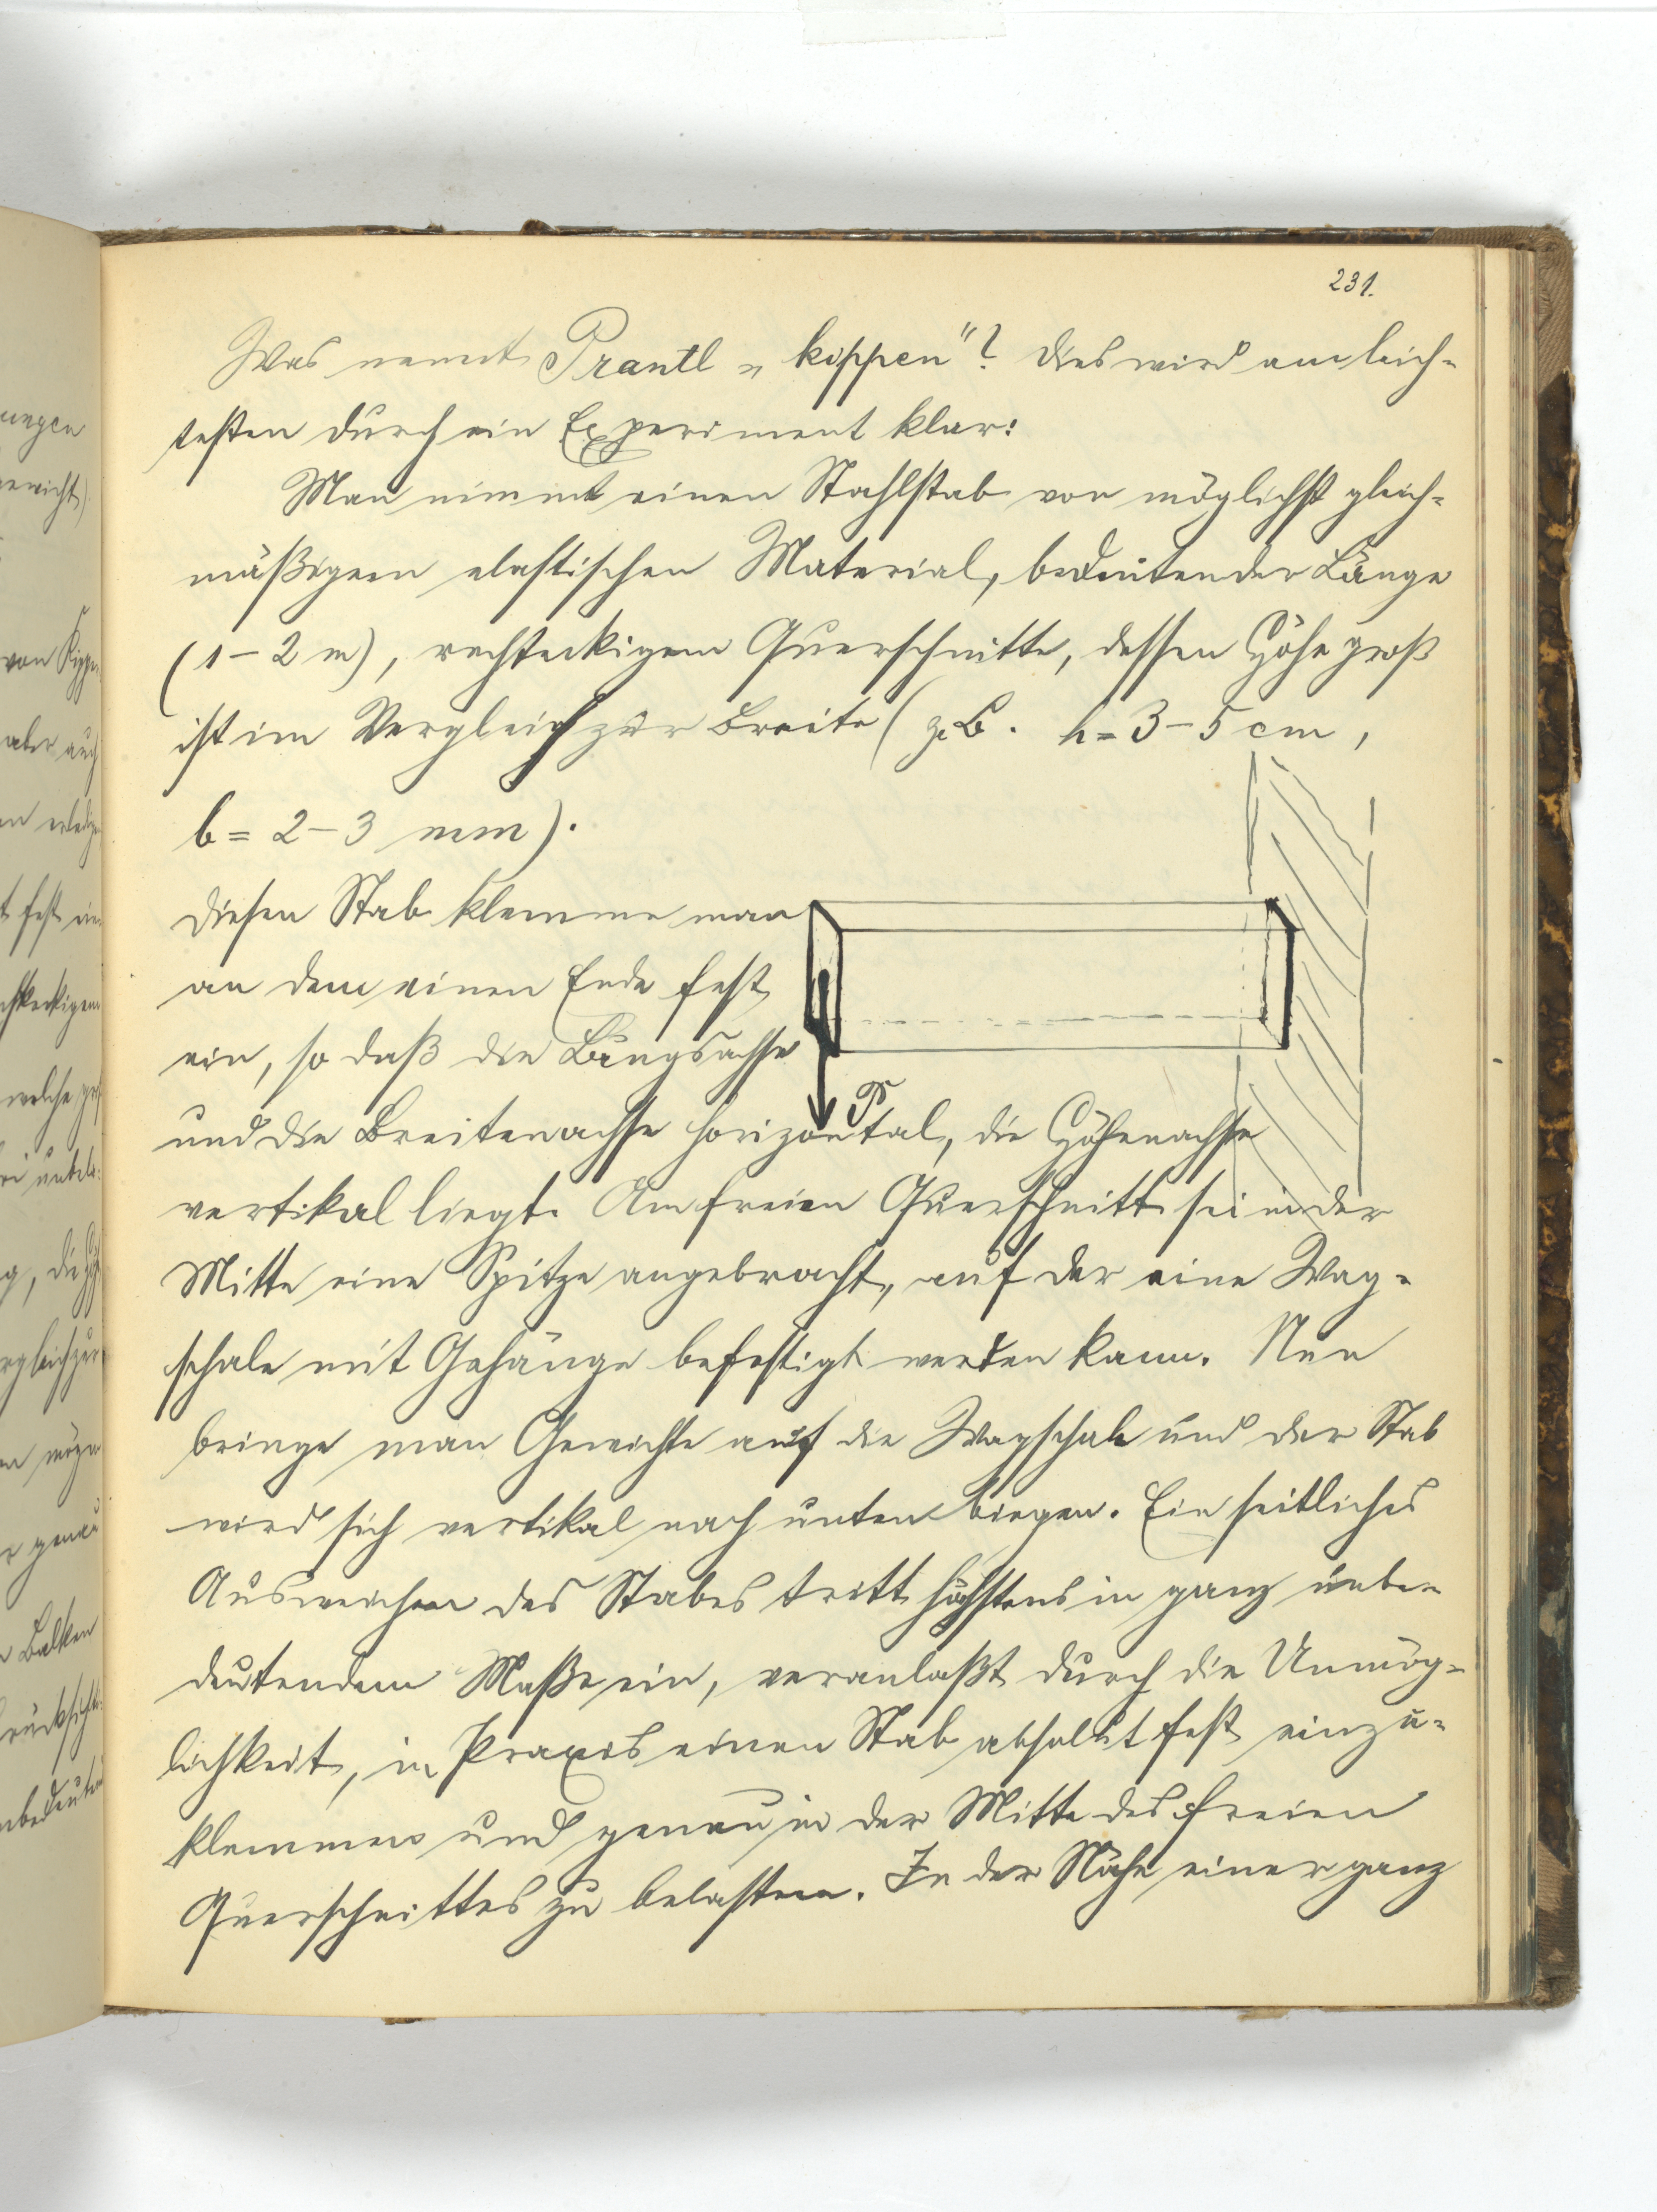 231.
Was nennt Prantl „kippen"? Dies wird am leich-
testen durch ein Experiment klar:
Man nimmt einen Stahlstab von möglichst gleich-
mäßigem elastischen Material, bedeutender Länge
(1 – 2 m), rechteckigem Querschnitte, dessen Höhe groß
ist im Vergleich zur Breite (z. B. h = 3 – 5 cm,
b = 2 – 3 mm).
Diesen Stab klemme man
an dem einen Ende fest
ein, so daß die Längsachse
P
und die Breitenachse horizontal, die Höhenachse
vertikal liegt. Am freien Querschnitt sei in der
Mitte eine Spitze angebracht, auf der eine Wag-
schale mit Gehänge befestigt werden kann. Nun
bringe man Gewichte auf die Wagschale und der Stab
wird sich vertikal nach unten biegen. Ein seitliches
Ausweichen des Stabes tritt höchstens in ganz unbe-
deutendem Maße ein, veranlaßt durch die Unmög-
lichkeit, in Praxis einen Stab absolut fest einzu-
klemmen und genau in der Mitte des freien
Querschnittes zu belasten. In der Nähe einer ganz